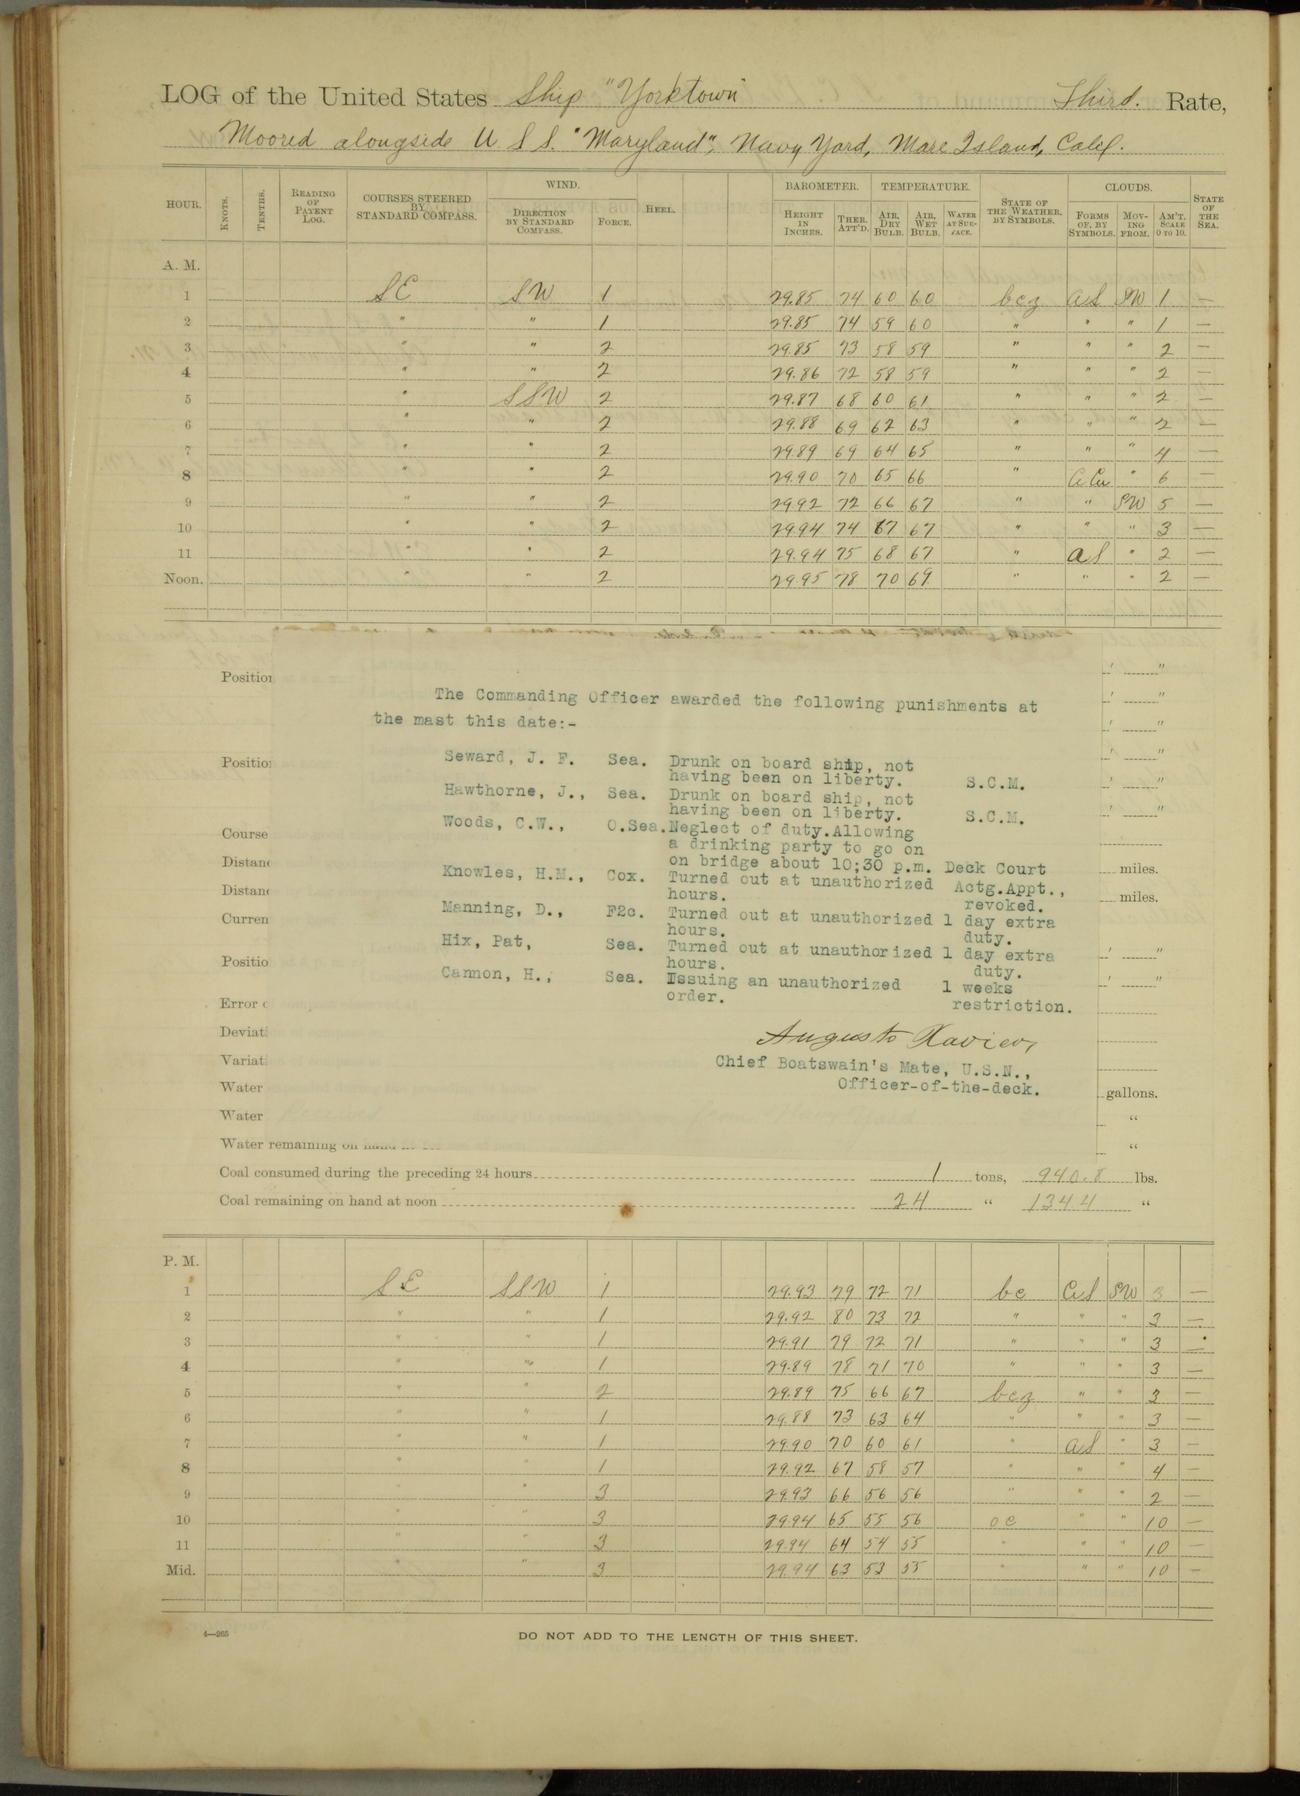 LOG of the United States Ship "Yorktown" Third. Rate,
Moored alongside U.S.S. "Maryland", Navy Yard, Mare Island, Calif.
HOUR. KNOTS. TENTHS. READING OF PATENT LOG. COURSES STEERED BY STANDARD COMPASS. WIND. DIRECTION BY STANDARD COMPASS. FORCE. HEEL. BAROMETER. HEIGHT IN INCHES. THER. ATT'D. TEMPERATURE. AIR, DRY BULB. AIR, WET BULB. WATER AT SUR-FACE. STATE OF THE WEATHER, BY SYMBOLS. CLOUDS. FORMS OF, BY SYMBOLS. MOV-ING FROM. AM'T. SCALE 0 TO 10. STATE OF THE SEA.
A. M.
1 SE SW 1 29.85 74 60 60 bcz aS SW 1 —
2 " " 1 29.85 74 59 60 " " " 1 —
3 " " 2 29.85 73 58 59 " " " 2 —
4 " " 2 29.86 72 58 59 " " " 2 —
5 " SSW 2 29.87 68 60 61 " " " 2 —
6 " " 2 29.88 69 62 63 " " " 2 —
7 " " 2 29.89 69 64 65 " " " 4 —
8 " " 2 29.90 70 65 66 " a Cu " 6 —
9 " " 2 29.92 72 66 67 " " SW 5 —
10 " " 2 29.94 74 67 67 " " " 3 —
11 " " 2 29.94 75 68 67 " aS " 2 —
Noon. " " 2 29.95 78 70 69 " " " 2 —
Position
The Commanding Officer awarded the following punishments at
the mast this date:-
Position
Seward, J. F. Sea. Drunk on board ship, not
having been on liberty. S.C.M.
Hawthorne, J., Sea. Drunk on board ship, not
having been on liberty. S.C.M.
Woods, C.W., O.Sea. Neglect of duty. Allowing
Course
a drinking party to go on
on bridge about 10;30 p.m. Deck Court
Distanc miles.
Knowles, H.M., Cox. Turned out at unauthorized Actg.Appt.,
hours. revoked.
Distanc miles.
Manning, D., F2c. Turned out at unauthorized 1 day extra
Curren
hours. duty.
Hix, Pat, Sea. Turned out at unauthorized 1 day extra
Positio
hours. duty.
Cannon, H., Sea. Issuing an unauthorized 1 weeks
order. restriction.
Error o
Deviati
Augusto Xavier,
Variati
Chief Boatswain's Mate, U.S.N.,
Officer-of-the-deck.
Water gallons.
Water "
Water remaining on hand "
Coal consumed during the preceding 24 hours 1 tons, 940.8 lbs.
Coal remaining on hand at noon 24 " 1344 "
P. M.
1 SE SSW 1 29.93 79 72 71 bc aS SW 3 —
2 " " 1 29.92 80 73 72 " " " 3 —
3 " " 1 29.91 79 72 71 " " " 3 —
4 " " 1 29.89 78 71 70 " " " 3 —
5 " " 2 29.89 75 66 67 bcz " " 3 —
6 " " 1 29.88 73 63 64 " " " 3 —
7 " " 1 29.90 70 60 61 " aS " 3 —
8 " " 1 29.92 67 58 57 " " " 4 —
9 " " 3 29.93 66 56 56 " " " 2 —
10 " " 3 29.94 65 55 56 oc " " 10 —
11 " " 3 29.94 64 54 55 " " " 10 —
Mid. " " 3 29.94 63 53 55 " " " 10 —
4—265
DO NOT ADD TO THE LENGTH OF THIS SHEET.